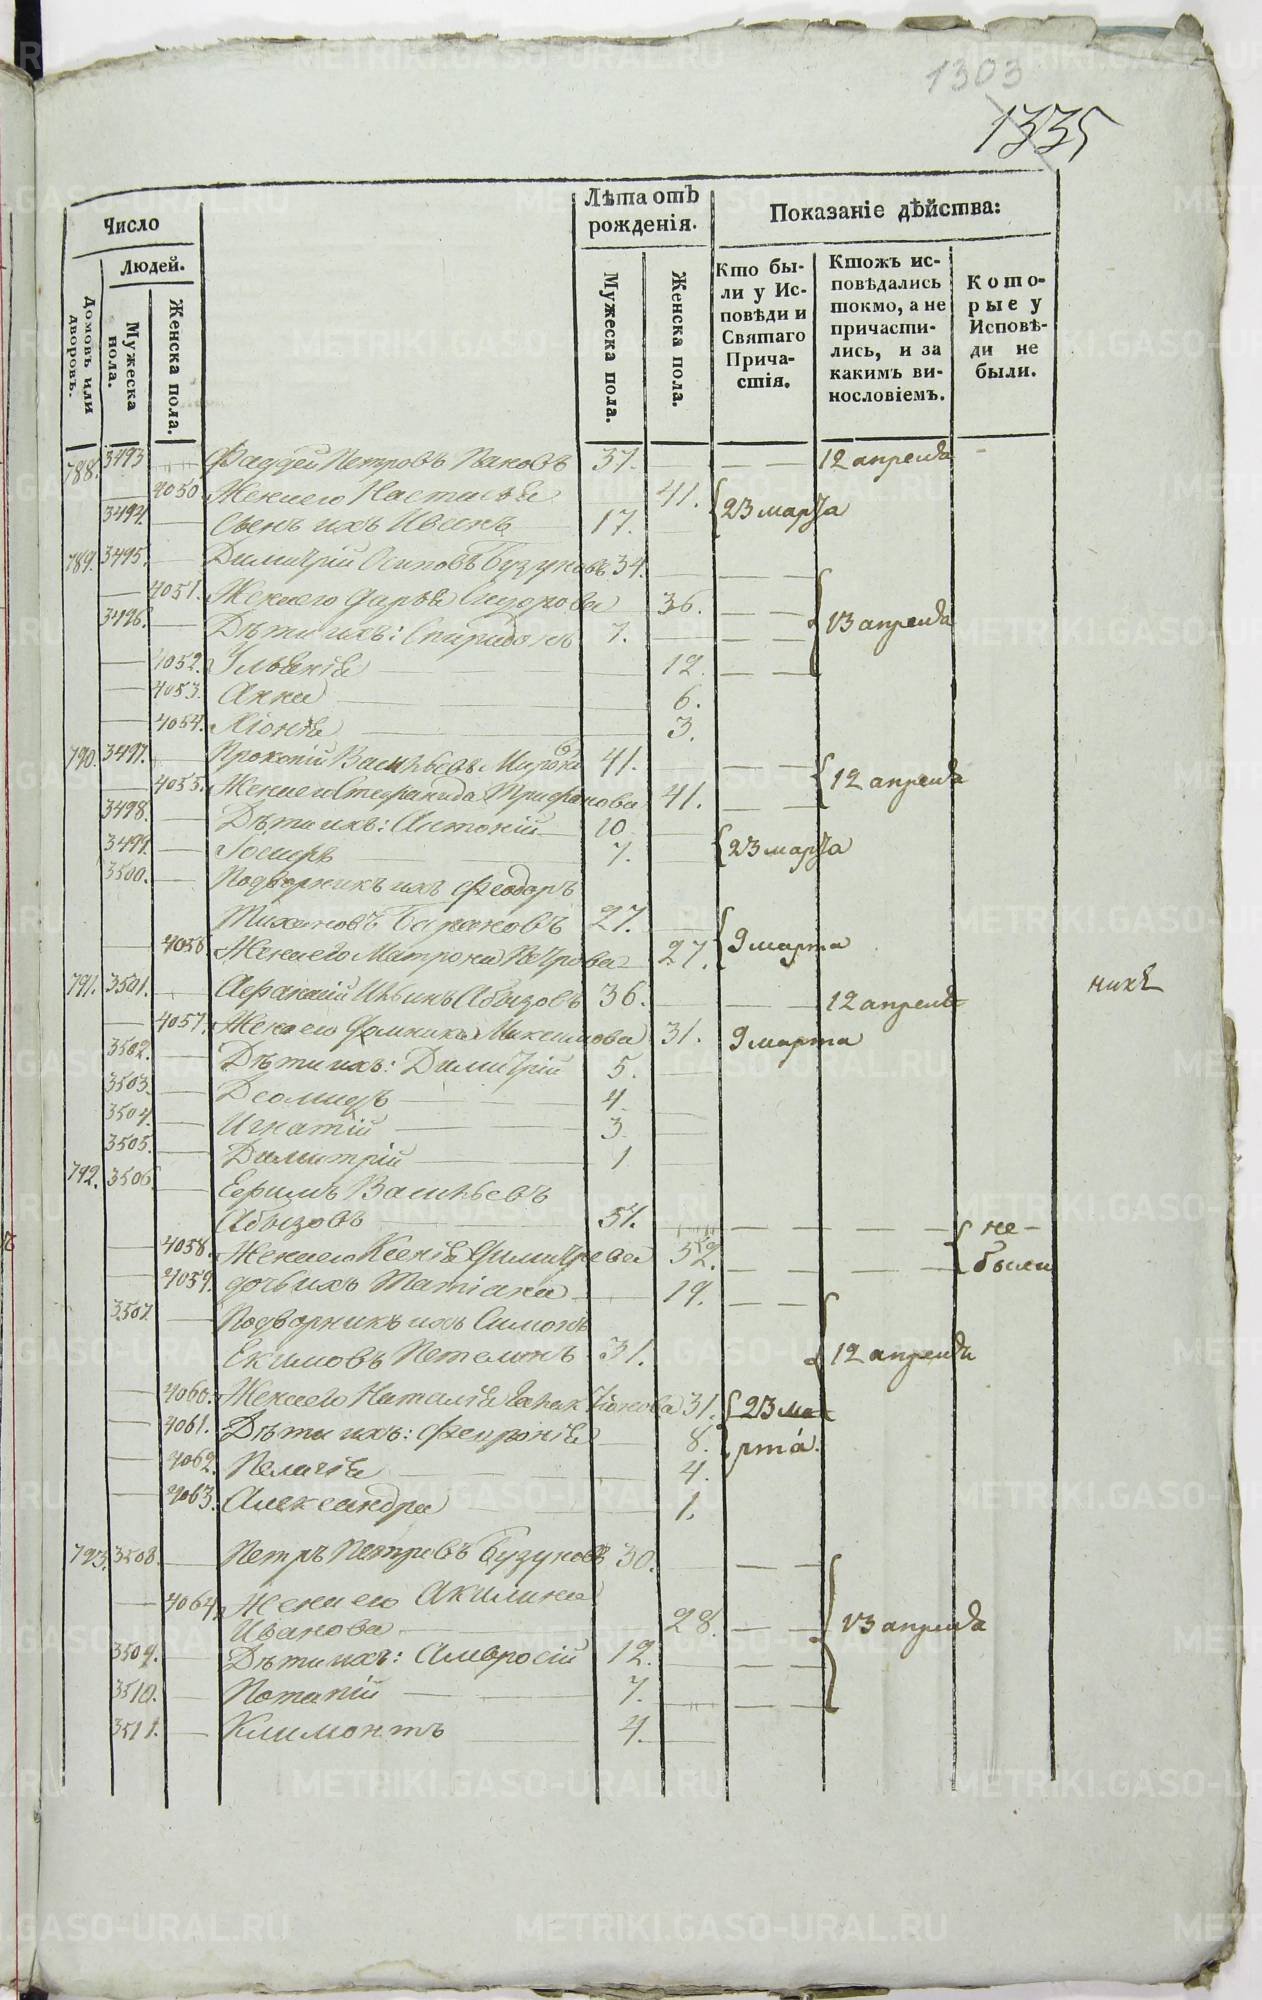 1303
1335
Число
Лѣта отъ рожденія.
Показаніе дѣйства:
Людей.
Домовъ или дворовъ.
Мужеска пола.
Женска пола.
Мужеска пола.
Женска пола.
Кто были у Исповѣди и Святаго Причастія.
Ктожъ исповѣдались токмо, а не причастились, и за какимъ винословіемъ.
Которые у Исповѣди не были.
788. 3493 Фаддей Петровъ Пановъ 37. 12 апреля
4050 Жена его Настасья 41. 23 марта
3494. Сынъ ихъ Иванъ 17.
789. 3495. Димитрій Осиповъ Бузуновъ 34.
4051. Жена его Дарья Сидорова 36. 13 апреля
3496. Дѣти их: Спиридонъ 7.
4052. Ульянія 12.
4053. Анна 6.
4054. Хіонія 3.
790. 3497. Прокопій Васильевъ 41. 12 апреля
4055. Жена его Стефанида Трифанова 41.
3498. Дѣти ихъ: Антоній 10 23 марта
3499. 7.
3500. Подворникъ ихъ Феодоръ
Тихановъ Барановъ 27. 9 марта
4056. Жена его Матрона Петрова 27.
791. 3501. Афанасій Ильинъ Абызовъ 36. 12 апреля
4057. Жена его Домника Максимова 31. 9 марта
3502. Дѣти ихъ: Димитрій 5.
3503. Деомидъ 4.
3504. Игнатій 3.
3505. Димитрій 1
792. 3506. Ефимъ Васильевъ
Абызовъ 57. не
4058. Жена его Ксенія Димитрева 52. были
4059. Дочь ихъ Татіана 19.
3507. Подворникъ ихъ Симонъ
Екимовъ Петелинъ 31. 12 апреля
4060. Жена его Наталія 31. 23 ма-
4061. Дѣти ихъ: Феvронія 8. рта.
4062. Пелагія 4.
4063. Александра 1.
793. 3508. Петръ Петровъ Бузуновъ 30.
4064. Жена его Акилина
Иванова 28. 13 апреля
3509. Дѣти ихъ: Амвросій 12.
3510. Потапій 7.
3511. Климонтъ 4.
METRIKI.GASO-URAL.RU